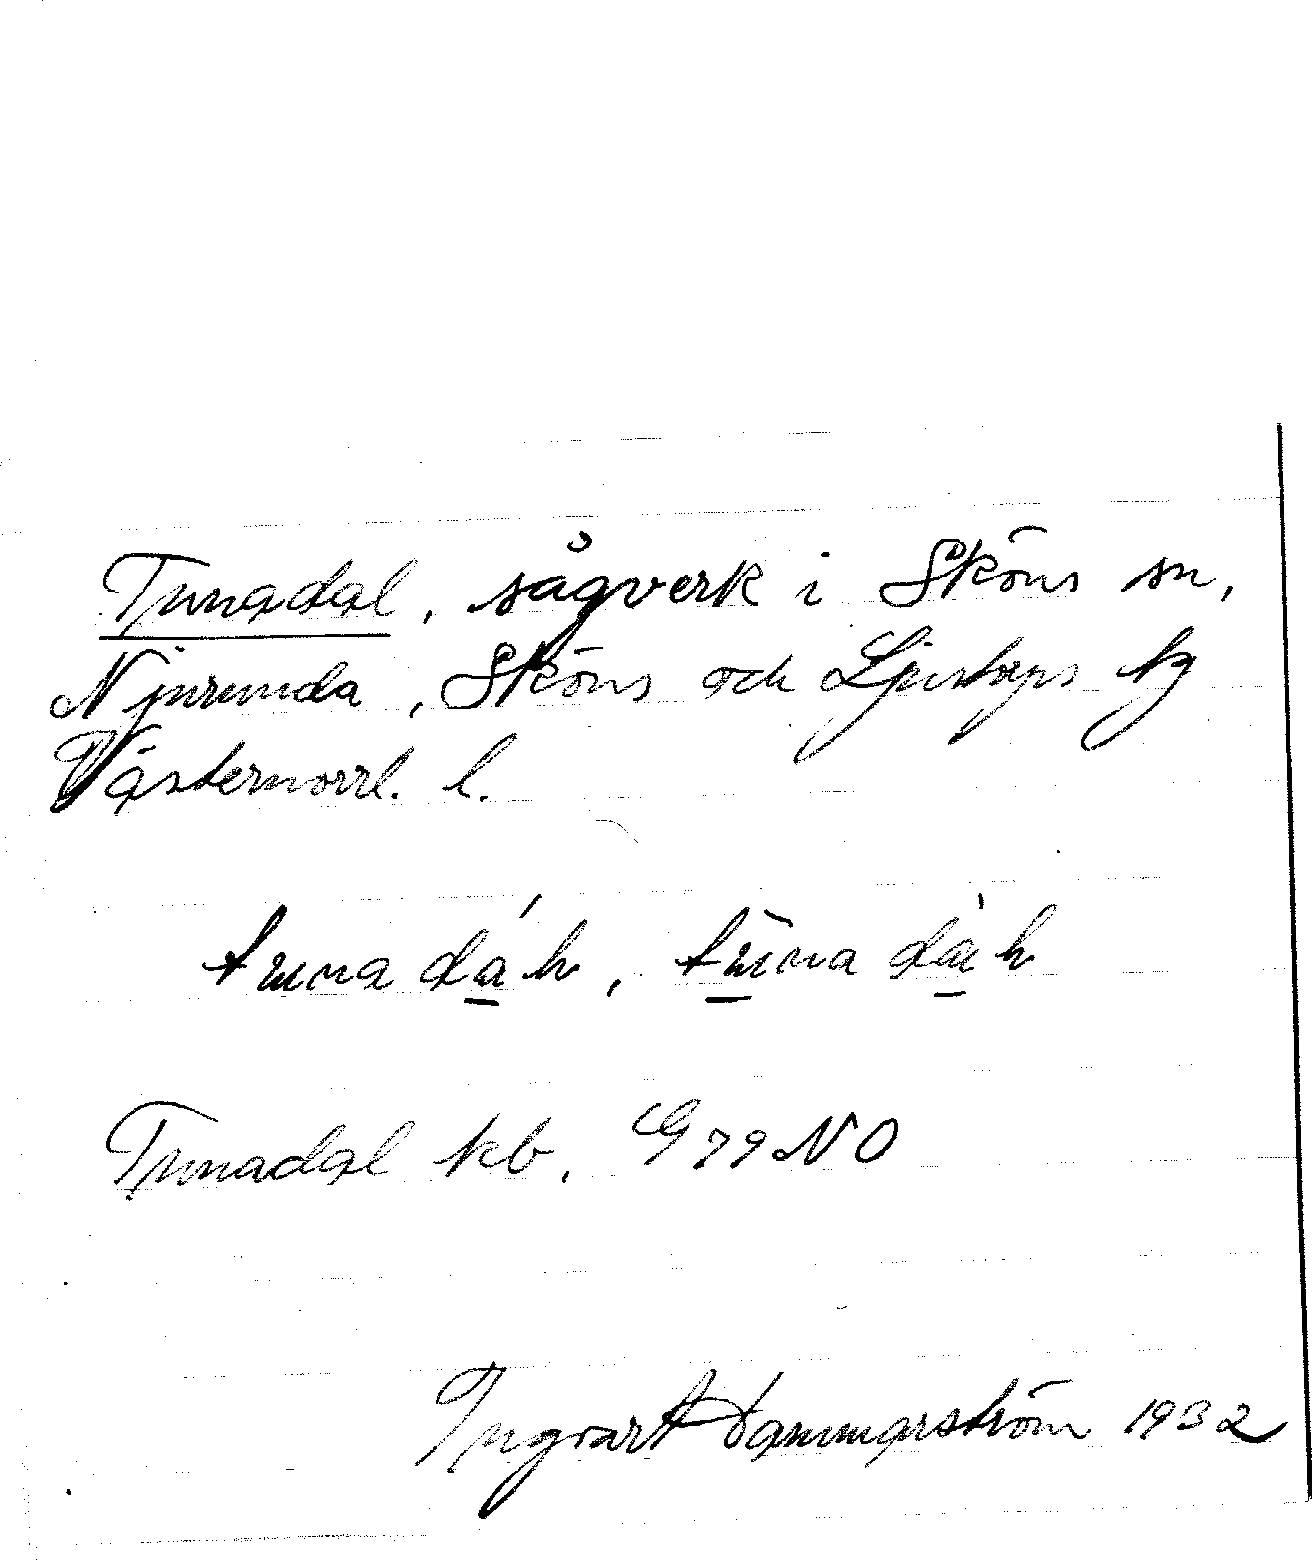 Tunadal, sågverk i Sköns sn,
Njurunda, Sköns och Ljustorps tg
Västernorrl. l.
tunadáh, tūnadàh
Tunadal kb. G79NO
Ingvart Hammarström 1932